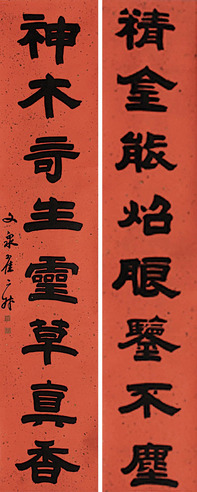 精金能炤眼鑒不塵
神木奇生靈草真香
文泉崔